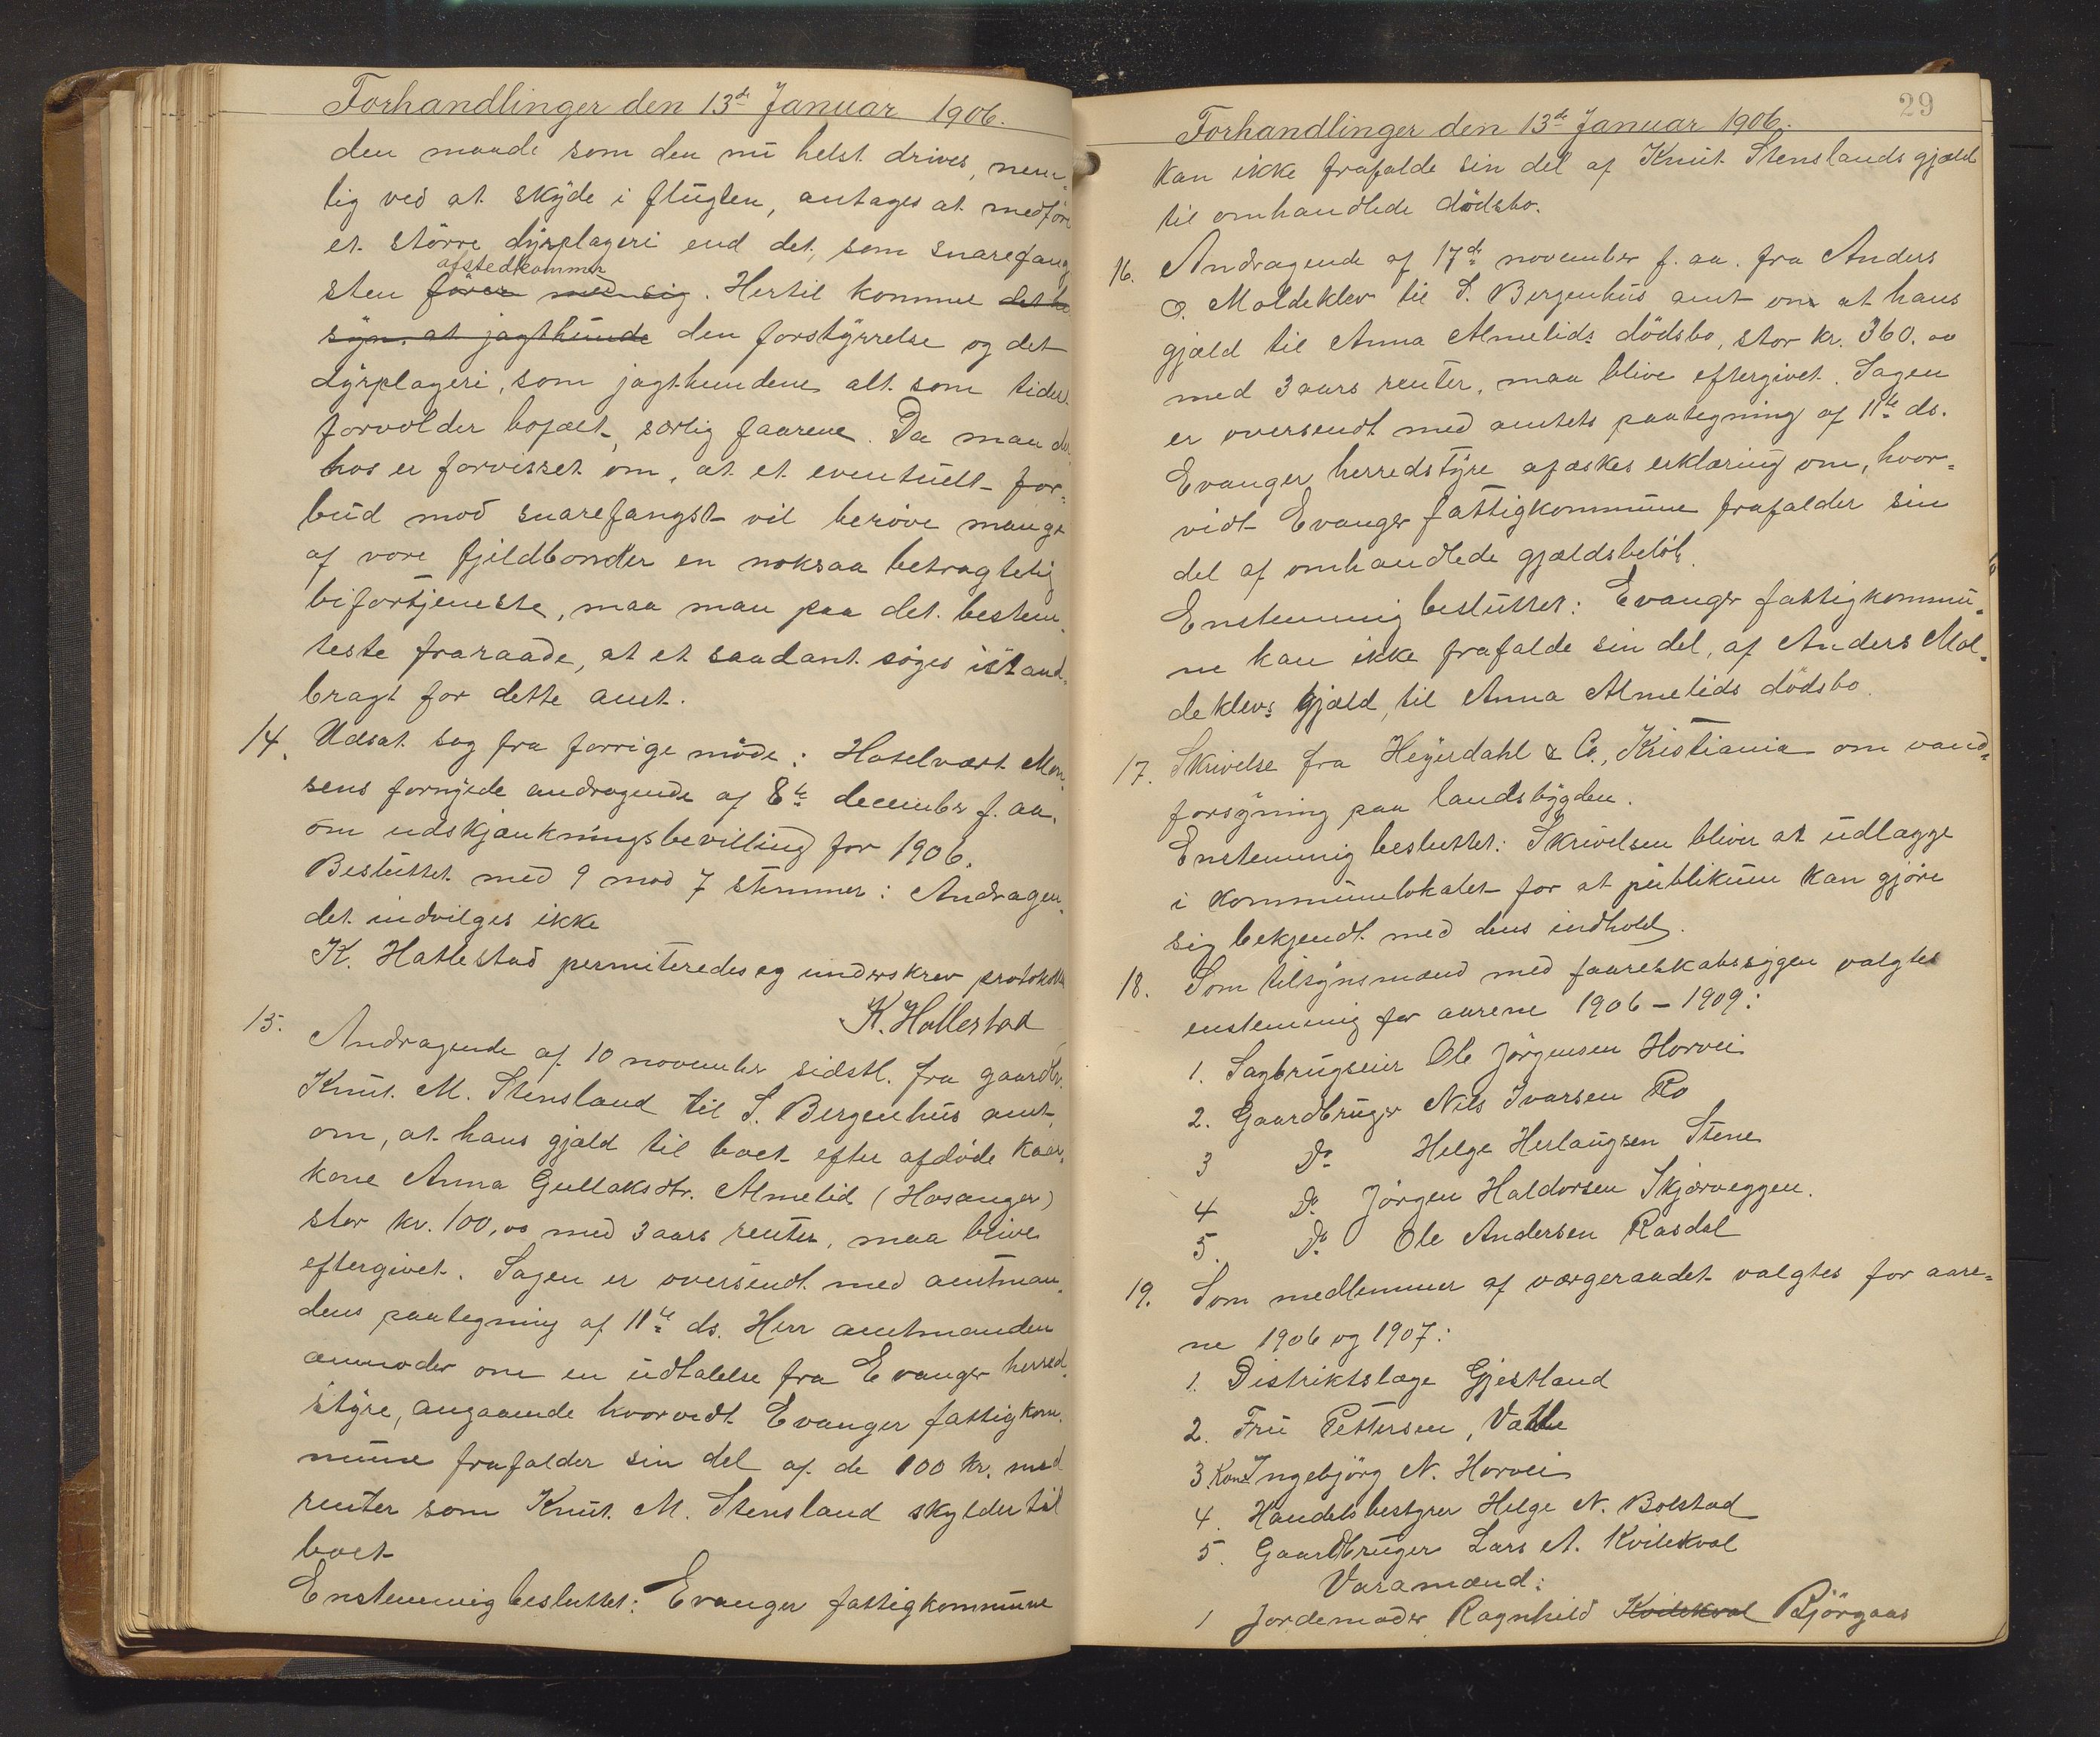 Forhandlinger den 13de Januar 1906.
den maade som den nu helst drives, nem-
lig ved at skyde i flugten, antages at medføre
et större dyrplageri end det, som snarefang
afstedkommer
sten fører med sig. Hertil kommer det he
syn. at jagthunde den forstyrrelse og det
dyrplageri, som jagthundene alt som tider
forvolder bofæet, særlig faarene. Da man der
hos er forvisset om, at et eventuelt for-
bud mod snarefangst vil berøve mange
af vore fjeldbønder en noksaa betragtelig
bifortjeneste, maa man paa det bestem-
teste fraraade, at et saadant søges istand-
bragt for dette amt.
14. Udsat sag fra forrige möde: Hotelvært Mon-
sens fornyede andragende af 8de december f. aa.
om udskjænkningsbevilling for 1906.
Besluttet med 9 mod 7 stemmer: Andragen-
det indvilges ikke
K. Hatlestad permiteredes og underskrev protokollen
K. Hallestad
15. Andragende af 10 november sidstl. fra gaardbr.
Knut M. Stensland til S. Bergenhus amt
om, at hans gjæld til boet efter afdöde kaar-
kone Anna Gullaksdtr. Almelid (Hosanger)
stor kr. 100,00 med 3 aars renter, maa blive
eftergivet. Sagen er oversendt med amtman-
dens paategning af 11te ds. Herr amtmanden
anmoder om en udtalelse fra Evanger herred-
styre, angaaende hvorvidt Evanger fattigkom-
mune frafalder sin del af de 100 kr. med
renter som Knut M. Stensland skylder til
boet
Enstemmig besluttet: Evanger fattigkommune
29
Forhandlinger den 13de Januar 1906.
kan ikke frafalde sin del af Knut Stenslands gjæld
til omhandlede dödsbo.
16. Andragende af 17de november f. aa. fra Anders
O. Moldeklev til S. Bergenhus amt om at hans
gjæld til Anna Almelids dödsbo, stor kr. 360.00
med 3 aars renter, maa blive eftergivet. Sagen
er oversendt med amtets paategning af 11te ds.
Evanger herredstyre afæskes erklæring om, hvor-
vidt Evanger fattigkommune frafalder sin
del af omhandlede gjældsbelöb.
Enstemmig besluttet: Evanger fattigkommu-
ne kan ikke frafalde sin del, af Anders Mol-
deklevs gjæld, til Anna Almelids dödsbo.
17. Skrivelse fra Heyerdahl & Co., Kristiania om vand-
forsyning paa landsbygden.
Enstemmig besluttet: Skrivelsen bliver at udlægge
i kommunelokalet for at publikum kan gjöre
sig bekjendt med dens indhold.
18. Som tilsynsmænd med faareskabssygen valgtes
enstemmig for aarene 1906 - 1909:
1. Sagbrugseier Ole Jörgensen Horvei
2. Gaardbruger Nils Ivarsen Ro
3 Do. Helge Herlaugsen Stene
4 Do. Jörgen Haldorsen Skjerveggen.
5. Do. Ole Andersen Rasdal
19. Som medlemmer af værgeraadet valgtes for aare-
ne 1906 og 1907:
1. Distriktslæge Gjestland
2. Fru Pettersen, Vatle
3. Kone Ingebjörg N. Horvei
4. Handelsbestyrer Helge N. Bolstad
5. Gaardbruger Lars A. Kvilekval
Varamænd:
1 Jordemoder Ragnhild Kvilekval Björgaas